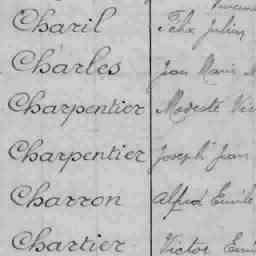 Charil Felix Julien
Charles Jean Marie
Charpentier Modeste Vic
Charpentier Joseph Jean
Charron Alfred Emile
Chartier Victor Emi